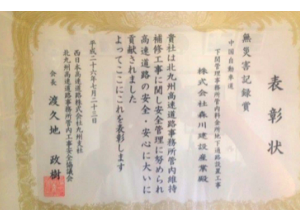 表彰状
無災害記録賞
中国自動車道
下関管理事務所管内料金所地下通路設置工事
株式会社森川建設産業殿
貴社は北九州高速道路事務所管内維持
補修工事に関し安全管理に努められ
高速道路の安全・安心に大いに
貢献されました
よってここにこれを表彰します
平成二十六年七月二十三日
西日本高速道路株式会社九州支社
北九州高速道路事務所管内工事安全協議会
会長 渡久地 政樹